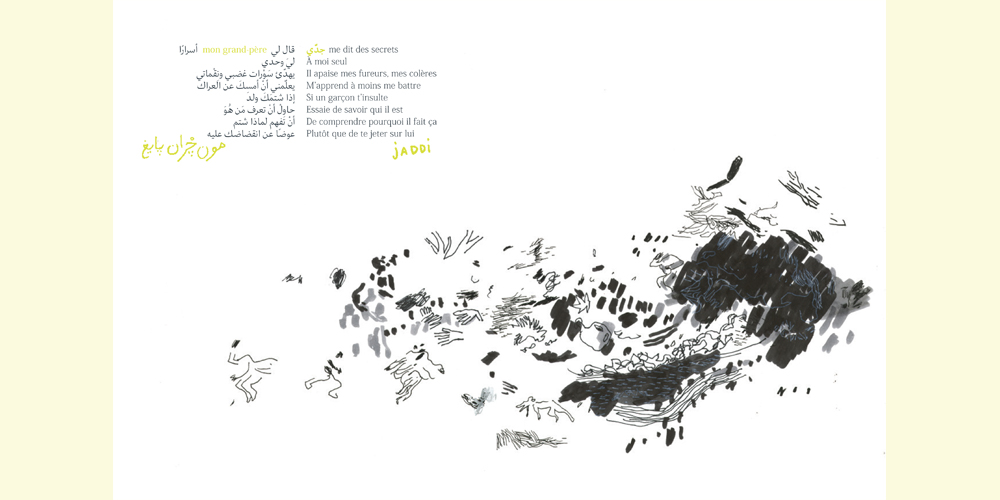 قال لي mon grand père أسرارًا
ليَ وحدي
يهدّئ سَوْرات غضبي ونقْماتي
يعلّمني أنْ أمسكَ عن العراك
إذا شتمَكَ ولدٌ
حاولْ أنْ تعرفَ مَن هُوَ
أنْ تفهمَ لماذا شتم
عوضًا عن انقضاضك عليه
مون چْران پايغ
جدّي me dit des secrets
À moi seul
Il apaise mes fureurs, mes colères
M'apprend à moins me battre
Si un garçon t'insulte
Essaie de savoir qui il est
De comprendre pourquoi il fait ça
Plutôt que de te jeter sur lui
jADDi